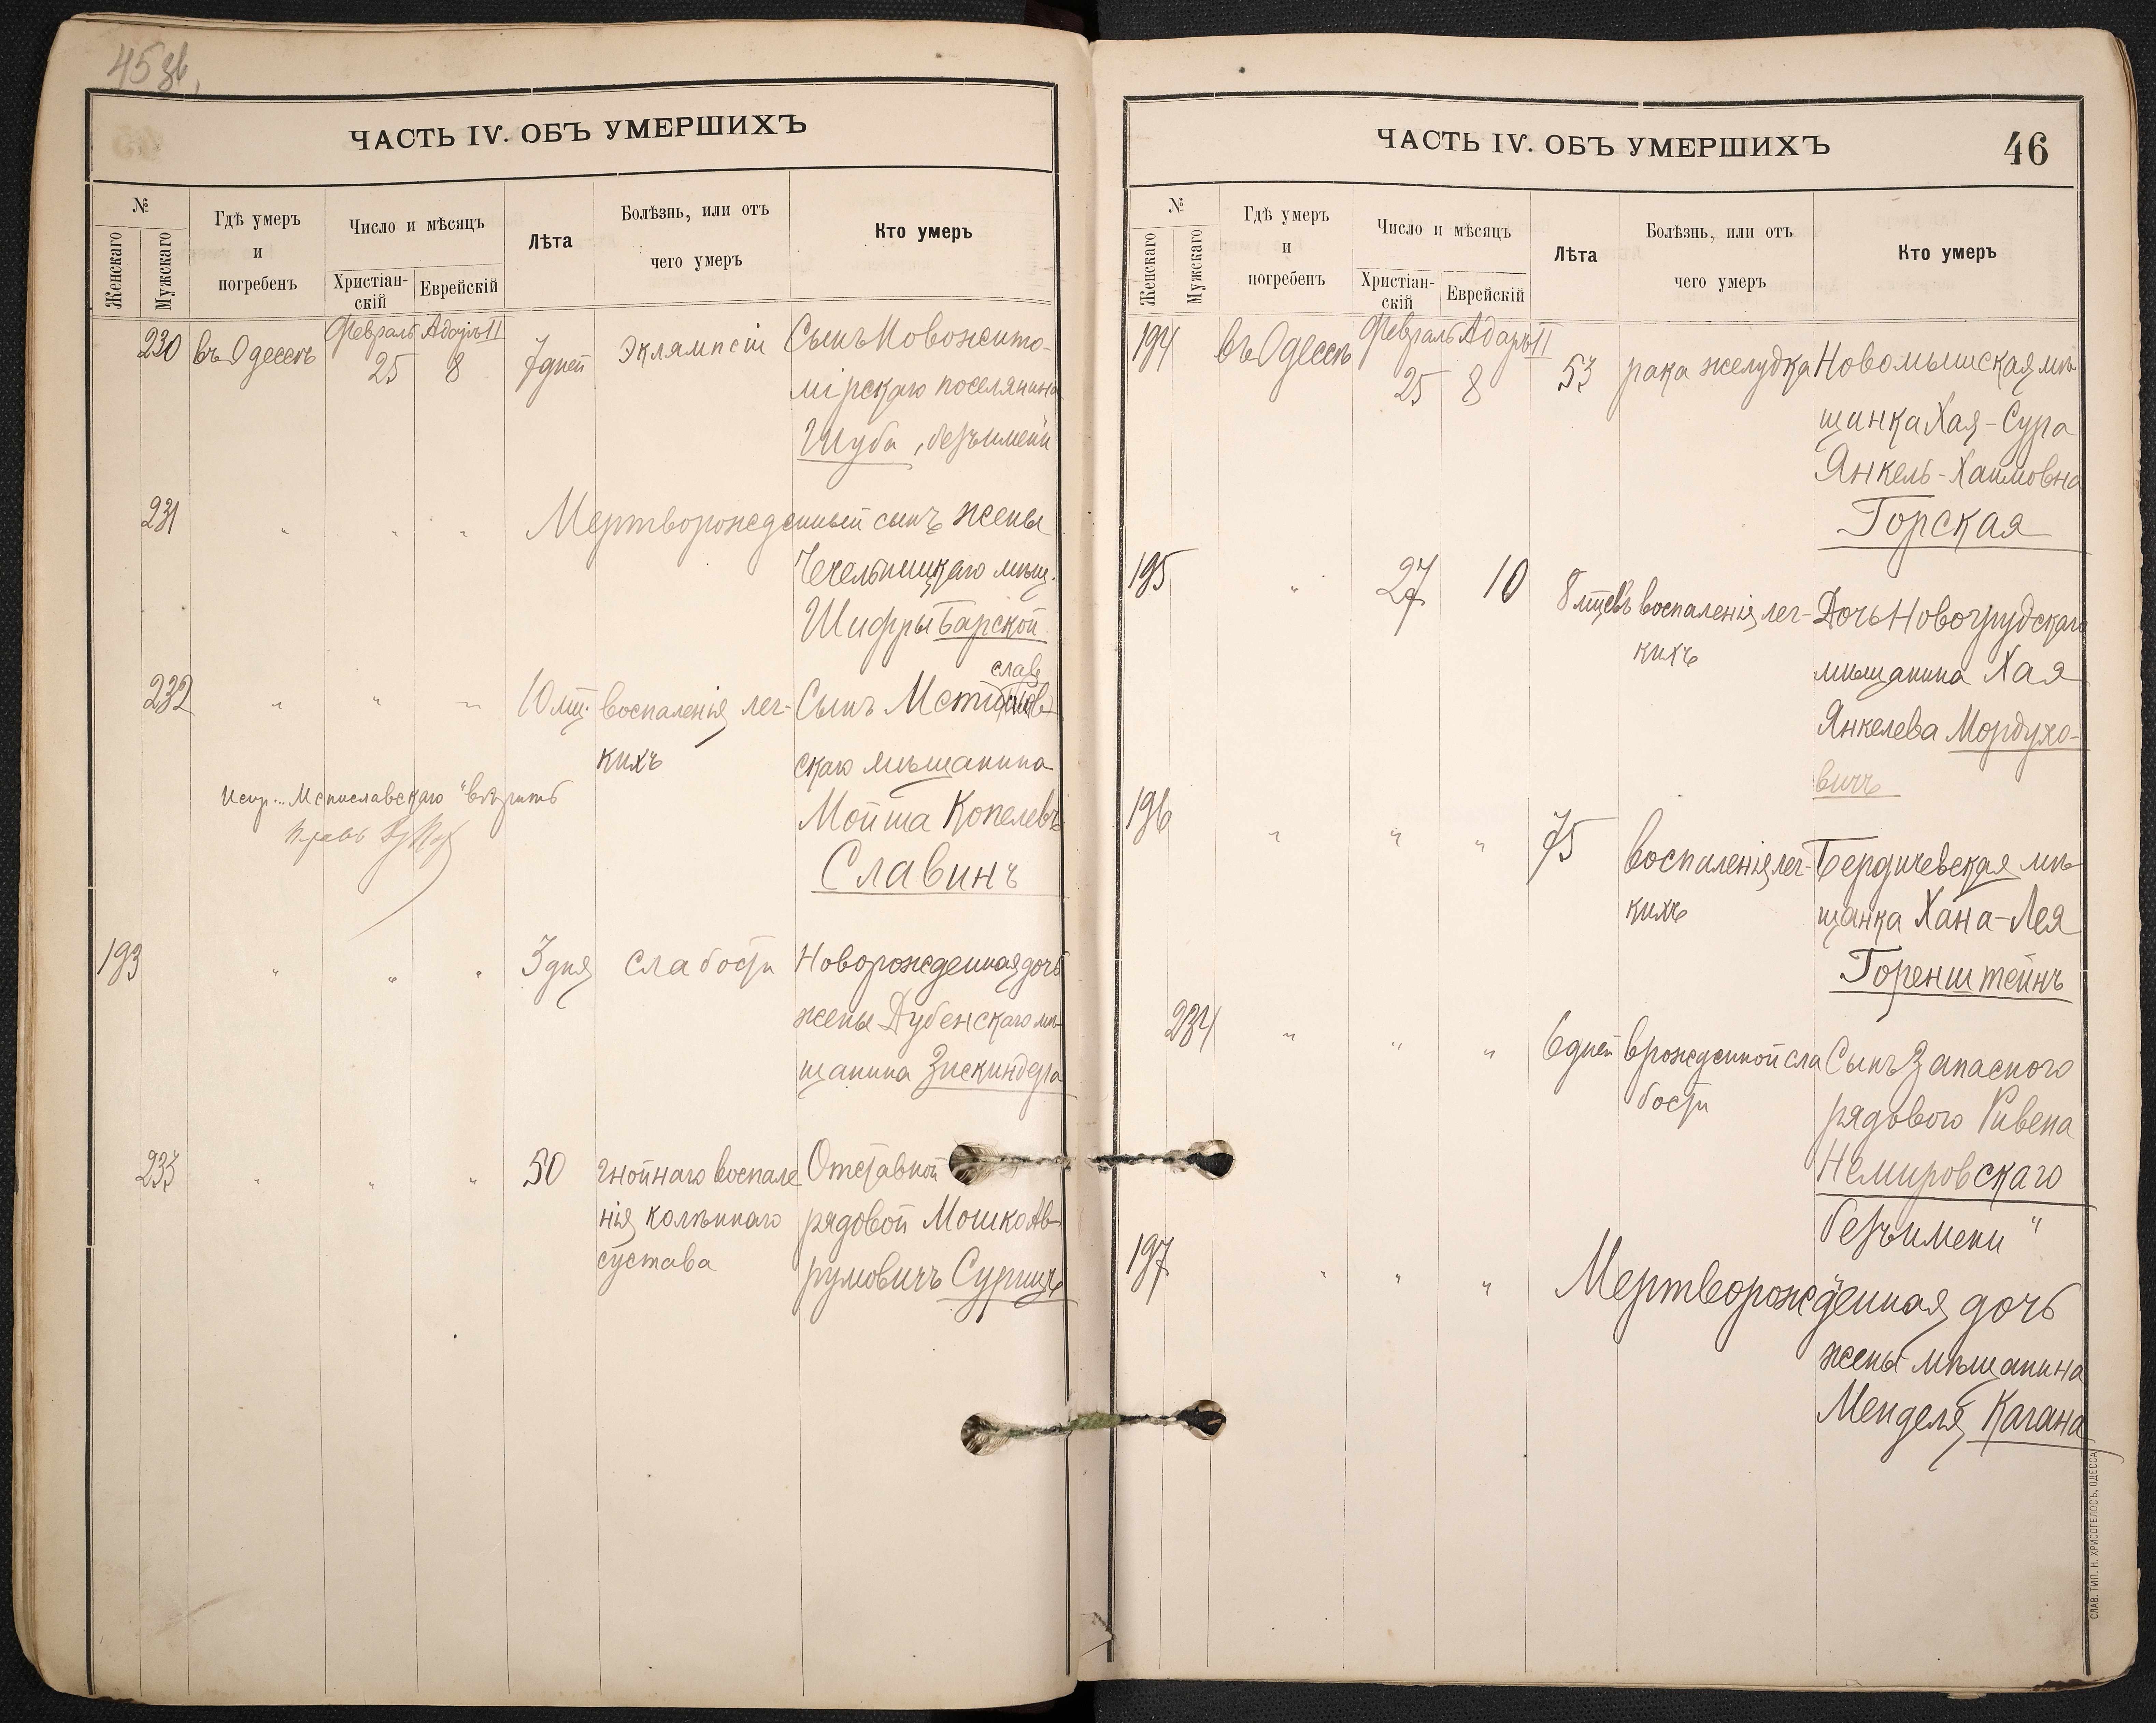 45 зв.
ЧАСТЬ IV. ОБЪ УМЕРШИХЪ
№
Женскаго
Мужскаго
Гдѣ умеръ
и
погребенъ
Число и мѣсяцъ
Христіан-
скій
Еврейскій
Лѣта
Болѣзнь, или отъ
чего умеръ
Кто умеръ
230 въ Одессѣ Февраль 25 Адаръ II 8 7 дней Эклямпсіи Сынъ Новожито-
мірскаго поселянина
Шуба, безъ имени
231 " " " Мертворожденный сынъ жены
Чечельницкаго мѣщ.
Шифры Барской
слав
232 " " " 10 мц. воспаленія лег- Сынъ Мсти
кихъ скаго мѣщанина
Испр... Мстиславскаго "вѣрить
Мойша Копелевъ
Славинъ
193 " " " 3 дня слабости Новорожденная дочь
жены Дубенскаго мѣ-
щанина Зискиндера
233 " " " 50 гнойнаго воспале Отставной
нія колѣннаго рядовой Мошко Ав-
сустава румовичъ
ЧАСТЬ IV. ОБЪ УМЕРШИХЪ
46
№
Женскаго
Мужскаго
Гдѣ умеръ
и
погребенъ
Число и мѣсяцъ
Христіан-
скій
Еврейскій
Лѣта
Болѣзнь, или отъ
чего умеръ
Кто умеръ
194 въ Одессѣ Февраль 25 Адаръ II 8 53 рака желудка Новомышская мѣ
щанка Хая-Сура
Янкель-Хаимовна
Горская
195 " 27 10 8 мцевъ воспаленія лег- Дочь Новогрудскаго
кихъ мѣщанина Хая
Янкелева Мордухо-
вичъ
196 " " " 75 воспаленія лег- Бердичевская мѣ
кихъ щанка Хана-Лея
Горенштейнъ
234 " " " 6 дней врожденной сла Сынъ Запасного
бости рядового Рувена
Немировскаго
безъ имени "
197 " " " Мертворожденная дочь
жены мѣщанина
Менделя Кагана
СЛАВ. ТИП. Н. ХРИСОГЕЛОСЪ, ОДЕССА